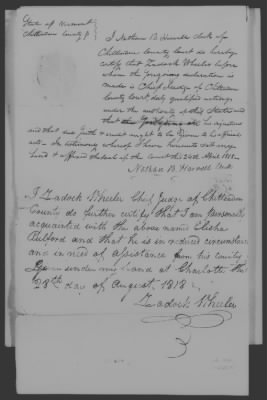 State of Vermont
Chittenden County ss
I Nathan B Haswell Clerk of
Chittenden County Court do hereby
certify that Zadock Wheeler before
whom the foregoing declaration is
made is Chief Judge of Chittenden
County Court, duly qualified
under the authority of this State and
that his signature
and that due faith & credit ought to be given to his official
acts. In testimony whereof I have hereunto set my
hand & affixed the seal of the court this 24th April 1818
Nathan B Haswell Clerk
I Zadock Wheeler Chief Judge of Chittenden
County do further certify that I am personally
acquainted with the above named Elisha
Fulford and that he is in reduced circumstances
and in need of assistance from his country
Given under my hand at Charlotte this
28th day of August, 1818
Zadock Wheeler